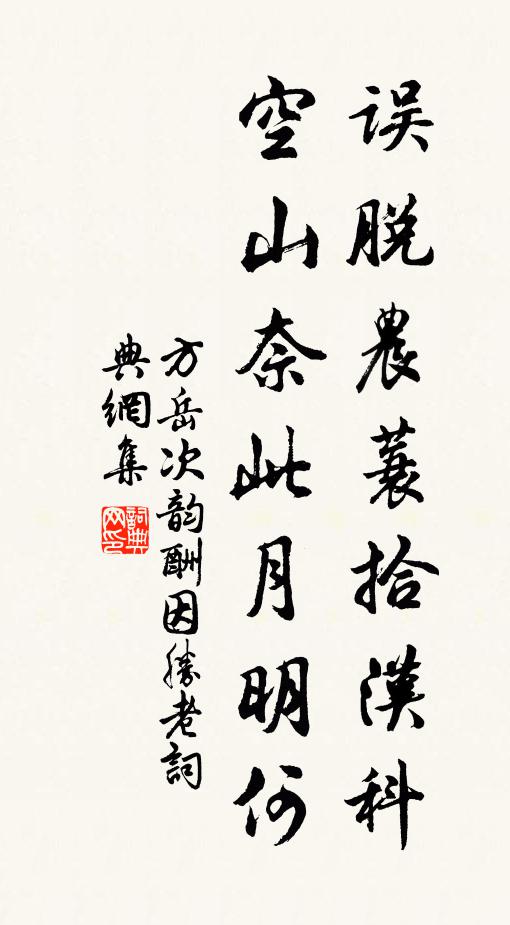 误脱農蓑拾漢科
空山奈此月明何
方岳次韵酬因勝老詞
典網集
詞典
网印